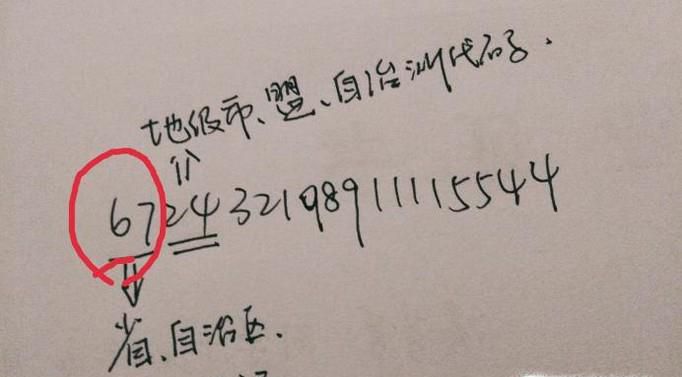 地级市、盟、自治洲代码.
672432198911115544
省、自治区、